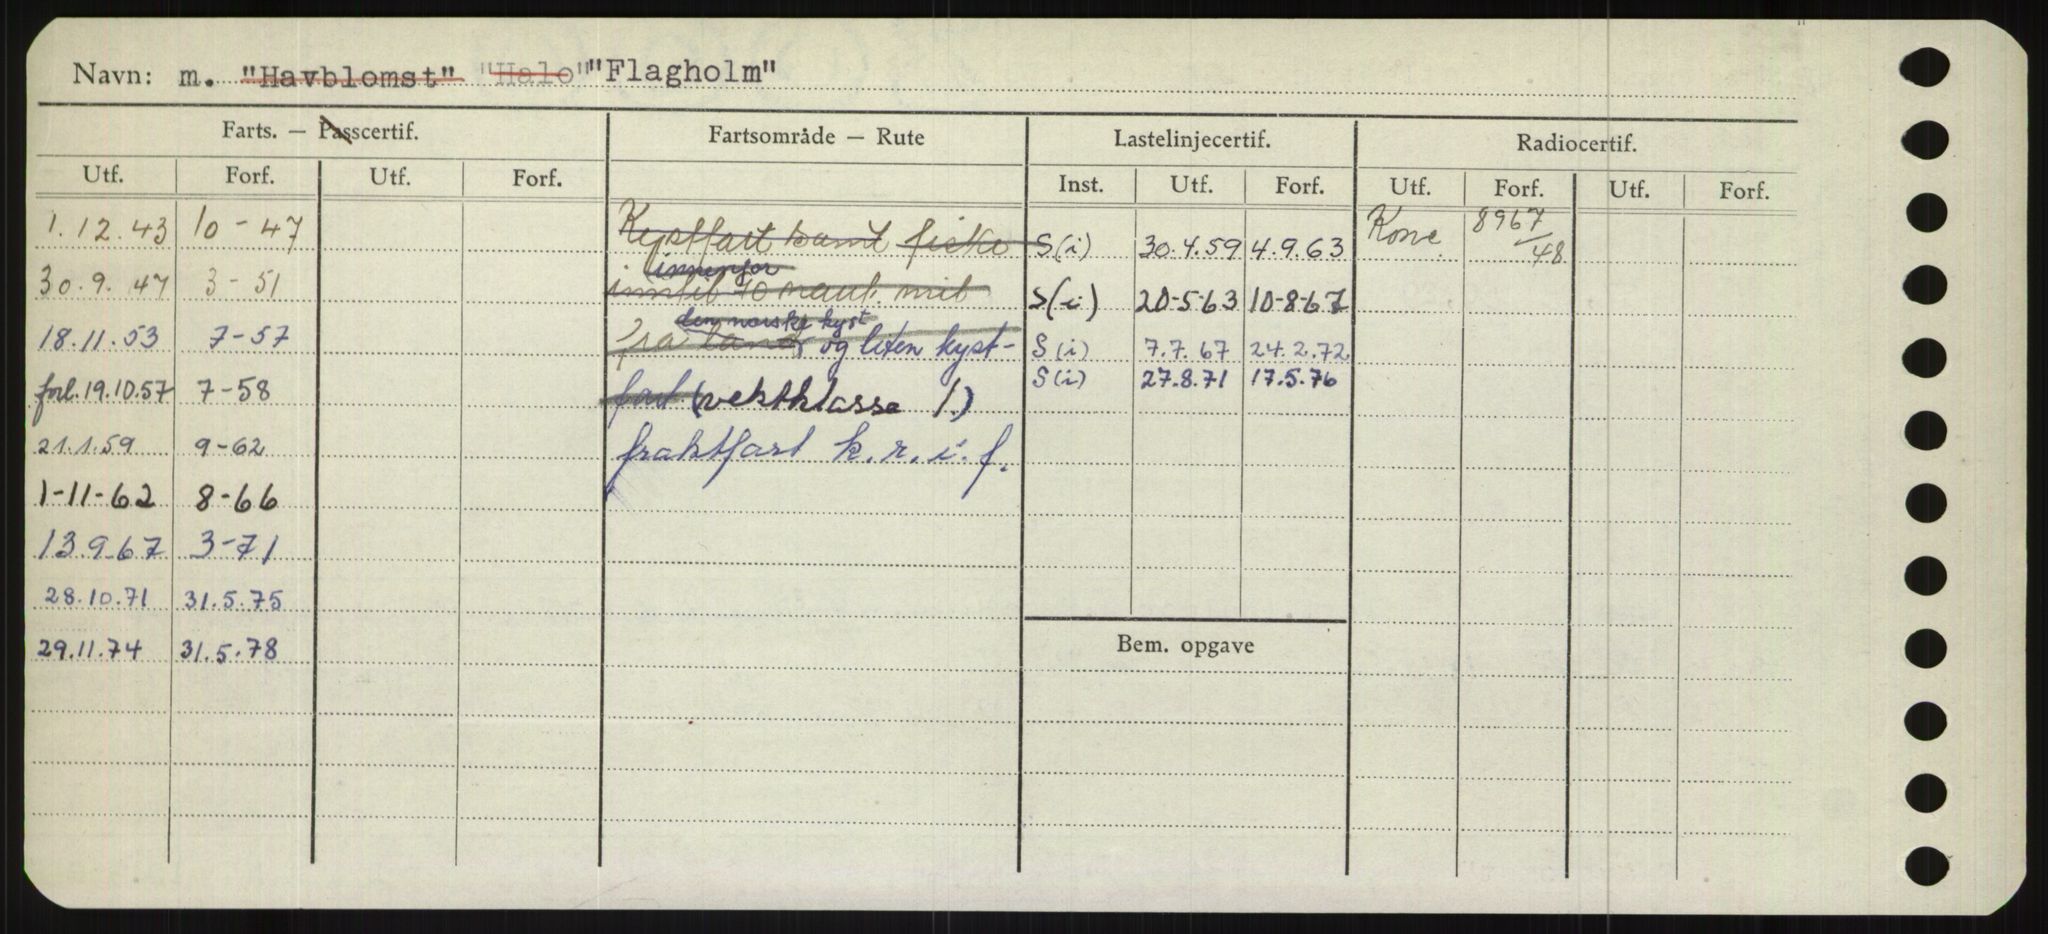 Navn: m. "Havblomst" "Halo" "Flagholm"
Farts. — Passcertif. Fartsområde — Rute Lastelinjecertif. Radiocertif.
Utf. Forf. Utf. Forf. Inst. Utf. Forf. Utf. Forf. Utf. Forf.
1.12.43 10-47 Kystfart samt fiske S(i) 30.4.59 4.9.63 Konc. 8967/48
innenfor
30.9.47 3-51 inntil 10 naut. mil S(i) 20-5-63 10-8-67
den norske kyst
18.11.53 7-57 fra land og liten kyst- S(i) 7.7.67 24.2.72
S(i) 27.8.71 17.5.76
forl. 19.10.57 7-58 fart (vektklasse 1.)
21.1.59 9-62 fraktfart k.r.i.f.
1-11-62 8-66
13.9.67 3-71
28.10.71 31.5.75
29.11.74 31.5.78
Bem. opgave